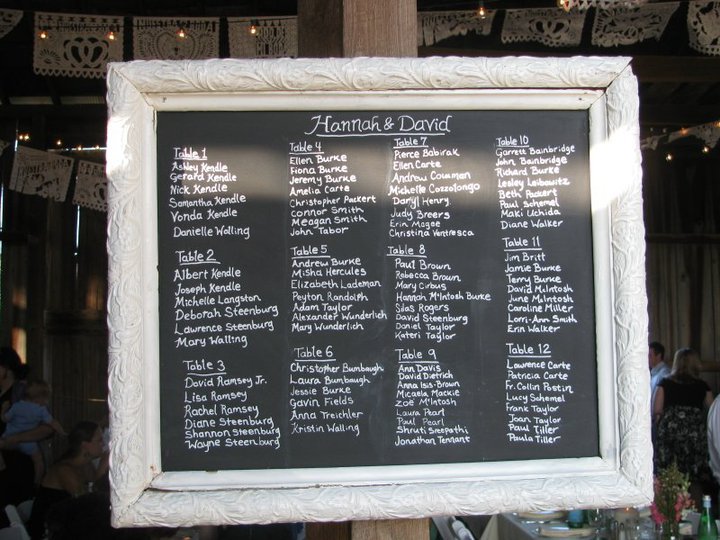 Hannah & David
Table 1
Ashley Kendle
Gerard Kendle
Nick Kendle
Samantha Kendle
Vonda Kendle
Danielle Walling
Table 2
Albert Kendle
Joseph Kendle
Michelle Langston
Deborah Steenburg
Lawrence Steenburg
Mary Walling
Table 3
David Ramsey Jr.
Lisa Ramsey
Rachel Ramsey
Diane Steenburg
Shannon Steenburg
Wayne Steenburg
Table 4
Ellen Burke
Fiona Burke
Jeremy Burke
Amelia Carte
Christopher Packert
Connor Smith
Meagan Smith
John Tabor
Table 5
Andrew Burke
Misha Hercules
Elizabeth Lademan
Peyton Randolph
Adam Taylor
Alexander Wunderlich
Mary Wunderlich
Table 6
Christopher Bumbaugh
Laura Bumbaugh
Jessie Burke
Gavin Fields
Anna Treichler
Kristin Walling
Table 7
Pierce Babirak
Ellen Carte
Andrew Cowman
Michelle Cozzolongo
Daryl Henry
Judy Breers
Erin Magee
Christina Ventresca
Table 8
Paul Brown
Rebecca Brown
Mary Cirbus
Hannah McIntosh Burke
Silas Rogers
David Steenburg
Daniel Taylor
Kateri Taylor
Table 9
Ann Davis
David Dietrich
Anna Isis-Brown
Micaela Mackie
Zoë McIntosh
Laura Pearl
Paul Pearl
Shruti Sreepathi
Jonathan Tennant
Table 10
Garrett Bainbridge
John Bainbridge
Richard Burke
Lesley Leibowitz
Beth Packert
Paul Schemel
Maki Uchida
Diane Walker
Table 11
Jim Britt
Jamie Burke
Terry Burke
David McIntosh
June McIntosh
Caroline Miller
Lorri-Ann Smith
Erin Walker
Table 12
Lawrence Carte
Patricia Carte
Fr. Collin Poston
Lucy Schemel
Frank Taylor
Joan Taylor
Paul Tiller
Paula Tiller